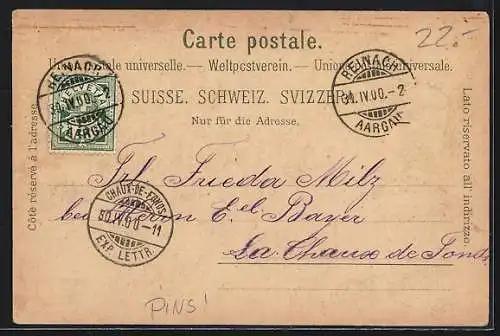 Carte postale.
22.-
Union postale universelle. — Weltpostverein. — Unione postale universale.
SUISSE. SCHWEIZ. SVIZZERA.
Nur für die Adresse.
REINACH
30.IV.00.-2
AARGAU
REINACH
30.IV.00.
AARGAU
HELVETIA
Côté réservé à l'adresse.
Lato riservato all' indirizzo.
Frl Frieda Milz
bei Herrn E. Bayer
La Chaux de Fonds
CHAUX-DE-FONDS
30.IV.00-11
EXP. LETTR.
PINS!